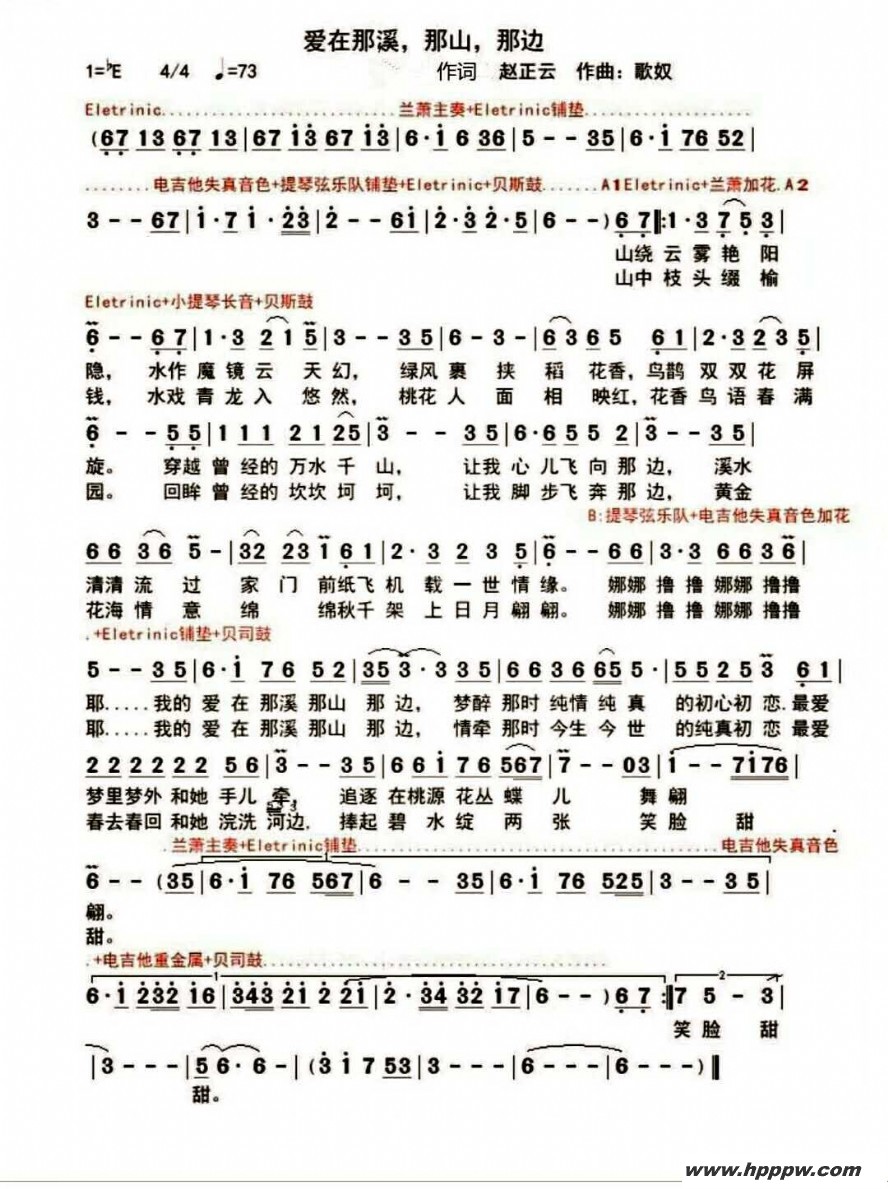 爱在那溪，那山，那边
1=♭E 4/4 ♩=73 作词 赵正云 作曲：歌奴
Eletrinic...........................兰萧主奏+Eletrinic铺垫.................
(67 13 67 13|67 1̇3 67 1̇3|6·1̇ 6 36|5 - - 35|6·1̇ 76 52|
........电吉他失真音色+提琴弦乐队铺垫+Eletrinic+贝斯鼓.......A1Eletrinic+兰萧加花.A2
3 - - 67|1̇·7 1̇·2̇3̇|2̇ - - 61̇|2̇·3̇ 2̇·5|6 - - ) 6 7‖:1·3 7 5 3|
山绕 云 雾 艳 阳
山中 枝 头 缀 榆
Eletrinic+小提琴长音+贝斯鼓
6 - - 6 7|1·3 2 1 5|3 - - 3 5|6 - 3 -|63 65 6 1|2·3 2 3 5|
隐， 水作 魔 镜 云 天 幻， 绿风 裹 挟 稻 花香，鸟鹊 双 双 花 屏
钱， 水戏 青 龙 入 悠 然， 桃花 人 面 相 映红，花香 鸟 语 春 满
6 - - 5 5|1 1 1 2 1 25|3 - - 35|6·65 5 2|3 - - 35|
旋。 穿越 曾 经的 万水 千 山， 让我 心 儿飞 向 那 边， 溪水
园。 回眸 曾 经的 坎坎 坷 坷， 让我 脚 步飞 奔 那 边， 黄金
B:提琴弦乐队+电吉他失真音色加花
6 6 3 6 5 -|32 23 1 6 1|2·3 2 3 5|6 - - 66|3·3 66 36|
清清 流 过 家 门 前纸飞 机 载 一 世 情 缘。 娜娜 撸 撸 娜娜 撸撸
花海 情 意 绵 绵秋千 架 上 日 月 翩 翩。 娜娜 撸 撸 娜娜 撸撸
.+Eletrinic铺垫+贝司鼓
5 - - 3 5|6·1̇ 76 52|35 3·335|66 36 65 5·|55 25 3 6 1|
耶.....我的 爱 在 那溪 那山 那 边， 梦醉 那时 纯情 纯 真 的初心初 恋.最爱
耶.....我的 爱 在 那溪 那山 那 边， 情牵 那时 今生 今 世 的纯真初 恋 最爱
22 22 22 56|3 - - 35|66 1̇7 6 567|7 - - 03|1̇ - - 71̇76|
梦里梦外 和她 手儿 牵， 追逐 在桃源 花丛 蝶 儿 舞 翩
春去春回 和她 浣洗 河边， 捧起 碧 水 绽 两 张 笑 脸 甜
.兰萧主奏+Eletrinic铺垫..................................电吉他失真音色
1
6 - - (35|6·1̇ 76 567|6 - - 35|6·1̇ 76 525|3 - - 35|
翩。
甜。
.+电吉他重金属+贝司鼓................................
1 2
6·1̇ 2̇3̇2̇ 1̇6|3̇4̇3̇ 2̇1̇ 2̇ 2̇1̇|2̇·3̇4̇ 3̇2̇ 1̇7|6 - - )6 7:‖7 5 - 3|
笑 脸 甜
|3 - - -|5 6· 6 -|(3̇ 1̇ 7 53|3 - - -|6 - - -|6 - - -)‖
甜。
www.hpppw.com